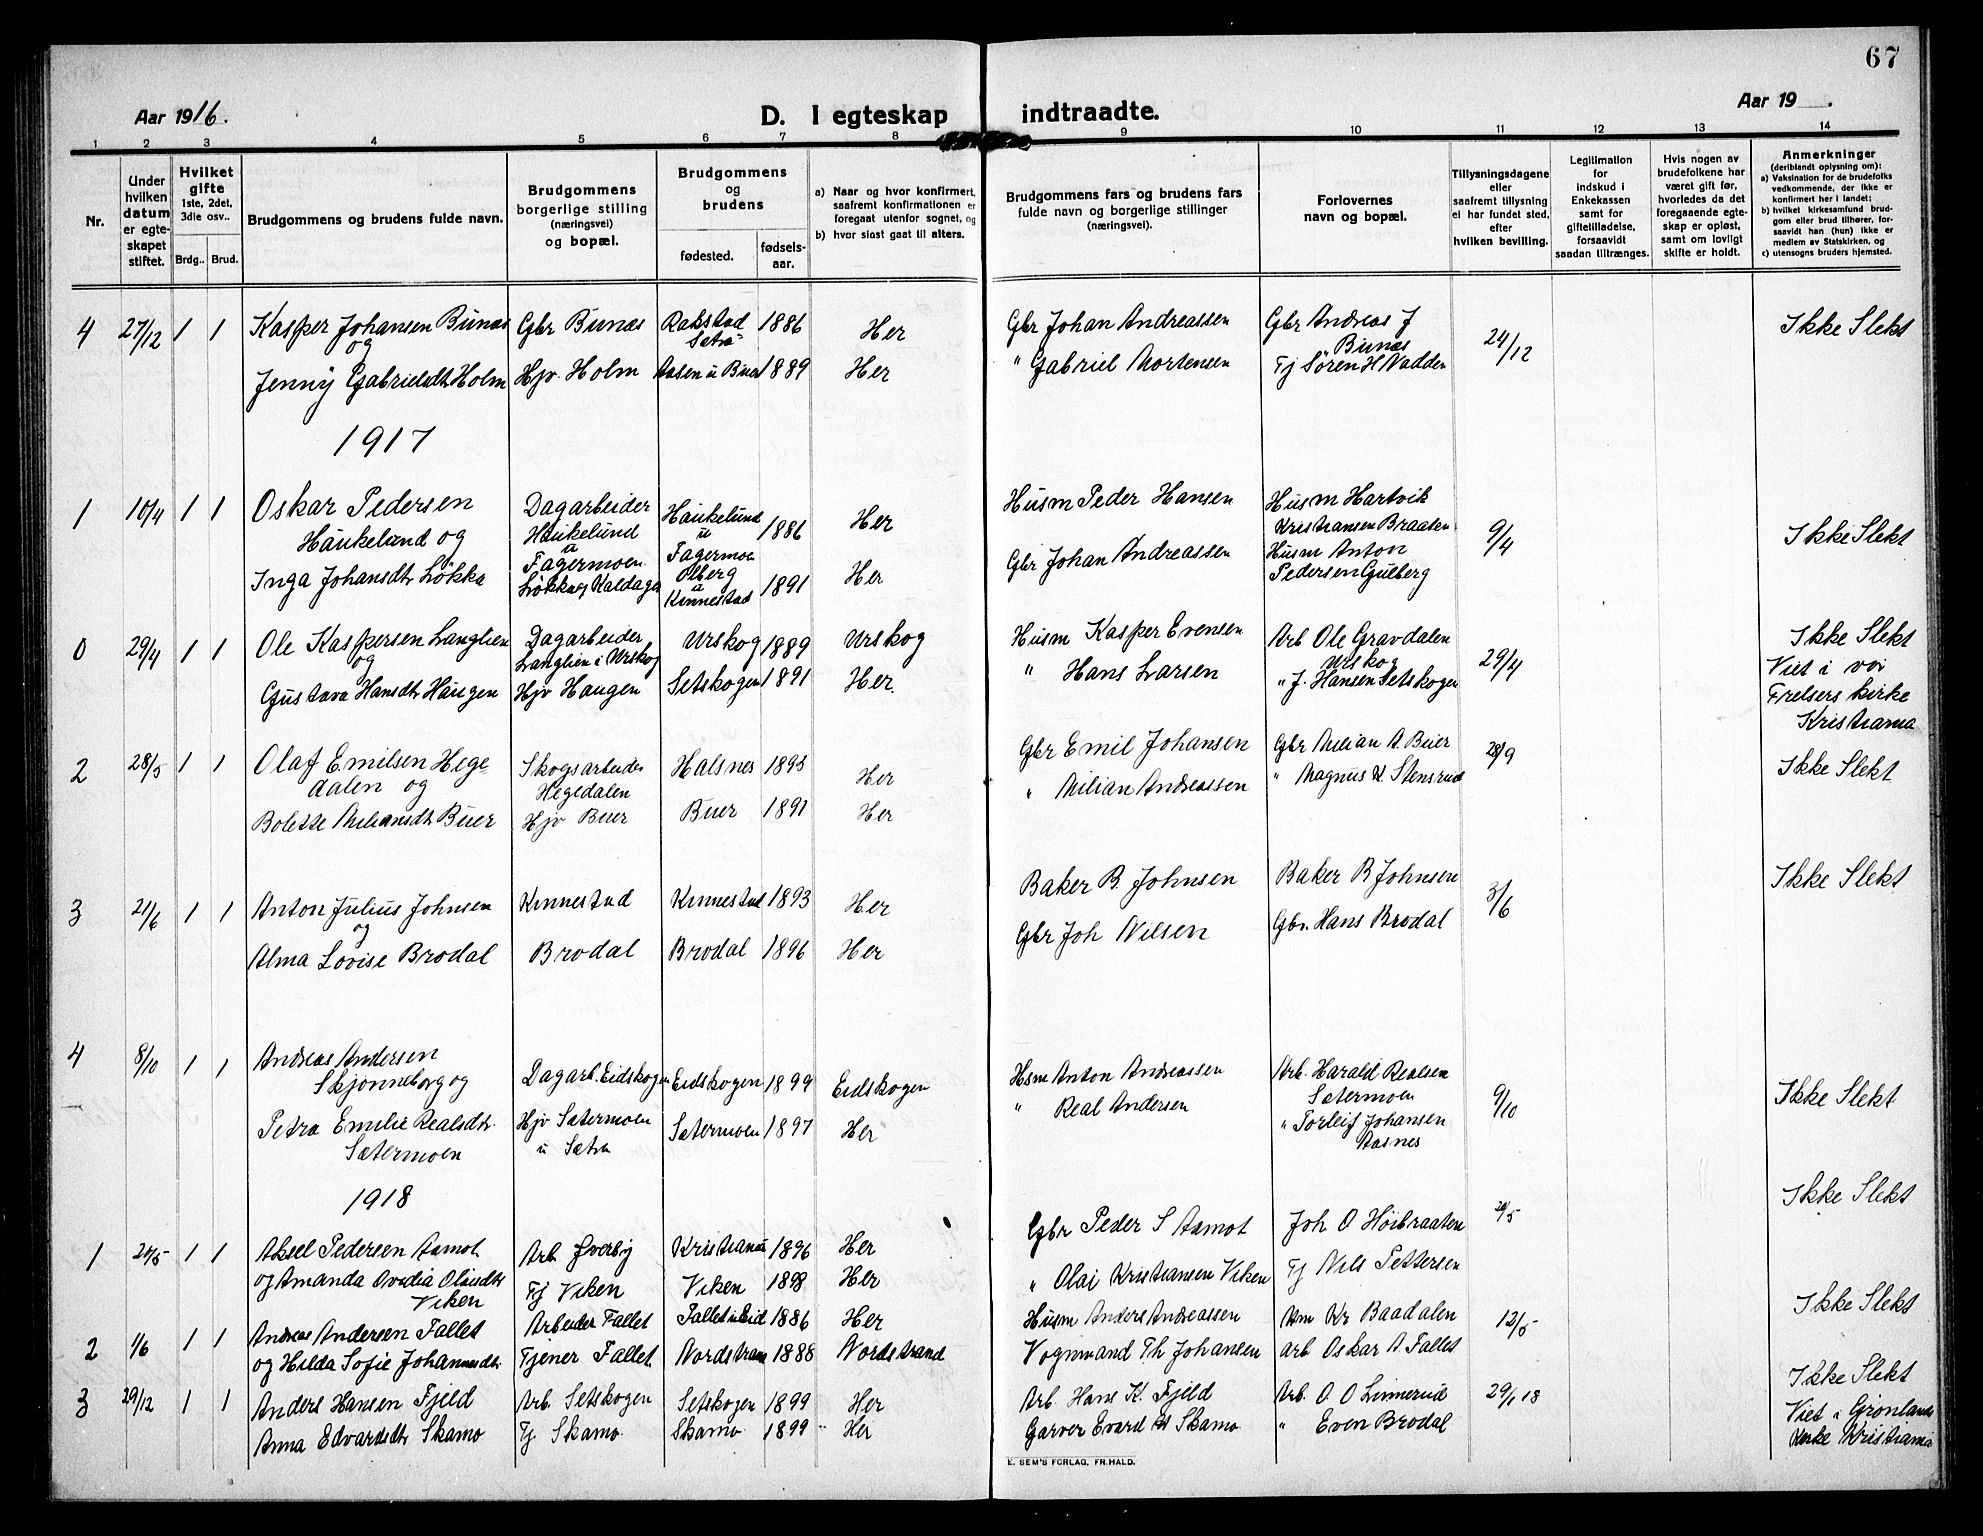 67
Aar 1916.
D. I egteskap indtraadte.
Aar 19 .
1 2 3 4 5 6 7 8 9 10 11 12 13 14
Nr.
Under hvilken datum er egteskapet stiftet.
Hvilket gifte 1ste, 2det, 3die osv..
Brdg.. Brud.
Brudgommens og brudens fulde navn.
Brudgommens borgerlige stilling (næringsvei) og bopæl.
Brudgommens og brudens
fødested.
fødselsaar.
a) Naar og hvor konfirmert, saafremt konfirmationen er foregaat utenfor sognet, og
b) hvor sidst gaat til alters.
Brudgommens fars og brudens fars fulde navn og borgerlige stillinger (næringsvei).
Forlovernes navn og bopæl.
Tillysningsdagene eller saafremt tillysning ei har fundet sted, efter hvilken bevilling.
Legitimation for indskud i Enkekassen samt for giftetilladelse, forsaavidt saadan tiltrænges.
Hvis nogen av brudefolkene har været gift før, hvorledes da det foregaaende egteskap er opløst, samt om lovligt skifte er holdt.
Anmerkninger (deriblandt oplysning om):
a) Vaksination for de brudefolks vedkommende, der ikke er konfirmert her i landet;
b) hvilket kirkesamfund brudgom eller brud tilhører, forsaavidt han (hun) ikke er medlem av Statskirken, og
c) utensogns bruders hjemsted.
4 27/12 1 1 Kasper Johansen Bunæs Gbr Bunæs Rakstad Setra 1886 Her Gbr Johan Andreassen Gbr Andreas J Bunæs 24/12 Ikke Slekt
og
Jenny Gabrielsdt Holm Hjv. Holm Aasen u Buer 1889 Her " Gabriel Mortensen Tj Sören H Nadden
1917
1 10/4 1 1 Oskar Pedersen Dagarbeider Haukelund 1886 Her Husm Peder Hansen Husm Hartvik 9/4 Ikke Slekt
Haukelund og Haukelund u Fagermoen u Fagermoen Kristiansen Braaten
Inga Johansdtr Lökka Lökka Olberg u Kinnestad 1891 Her Gbr Johan Andreassen Husm Anton Pedersen Gulberg
0 29/4 1 1 Ole Kaspersen Langlien Dagarbeider Urskog 1889 Urskog Husm Kasper Evensen Arb Ole Gravdalen Urskog 29/4 Ikke Slekt
og Langlien i Urskog
Gustava Hansdt Haugen Hjv Haugen Setskogen 1891 Her. " Hans Larsen " J. Hansen Setskogen Viet i vor Frelsers kirke Kristiania
2 28/5 1 1 Olaf Emilsen Hegedalen og Skogsarbeider Hegedalen Halsnes 1895 Her Gbr Emil Johansen Gbr Milian A. Buer Ikke Slekt
Bolette Miliansdt Buer Hjv Buer Buer 1891 Her " Milian Andreassen " Magnus K Stensrud
3 21/6 1 1 Anton Julius Johnsen Kinnestad Kinnestad 1893 Her Baker B. Johnsen Baker B Johnsen 3/6 Ikke Slekt
og
Alma Lovise Brodal Brodal Brodal 1896 Her Gbr Joh Nilsen Gbr. Hans Brodal
4 8/10 1 1 Andreas Andersen Skjönneborg og Dagarb. Eidskogen Eidskogen 1899 Eidskogen Hsm Anton Andreassen Arb. Harald Realsen Sætermoen 9/10 Ikke Slekt
Petra Emilie Realsdtr. Sætermoen Hjv Sætermoen u Sætra Sætermoen 1897 Her " Real Andersen " Torleif Johansen Aasnes
1918
1 20/5 1 1 Aksel Pedersen Aamot Arb Kristiania 1896 Her Gbr Peder S Aamot Joh O Höibraaten 20/5 Ikke Slekt
og Amanda Ovedia Olaisdtr Viken Tj Viken Viken 1898 Her " Olai Kristiansen Viken Tj Nils Pettersen
2 1/6 1 1 Andreas Andersen Fallet Arbeider Fallet Fallet u Eid 1886 Her Husm Anders Andreassen Hm Kr Baadalen 12/5 Ikke Slekt
og Hilda Sofie Johannesdtr Tjener Fallet Nordstrand 1888 Nordstrand Vognmand Th Johansen arb Oskar A Fallet
3 29/12 1 1 Anders Hansen Fjeld Arb. Setskogen Setskogen 1899 Her Arb. Hans K. Fjeld Arb. O O Linnerud 29/1 18 Ikke Slekt
Anna Edvardsdtr Skamo Tj Skamo Skamo 1899 Her Garver Evard Skamo " Even Brodal Viet i Grönlands Kirke Kristiania
E. SEM'S FORLAG, FR.HALD.